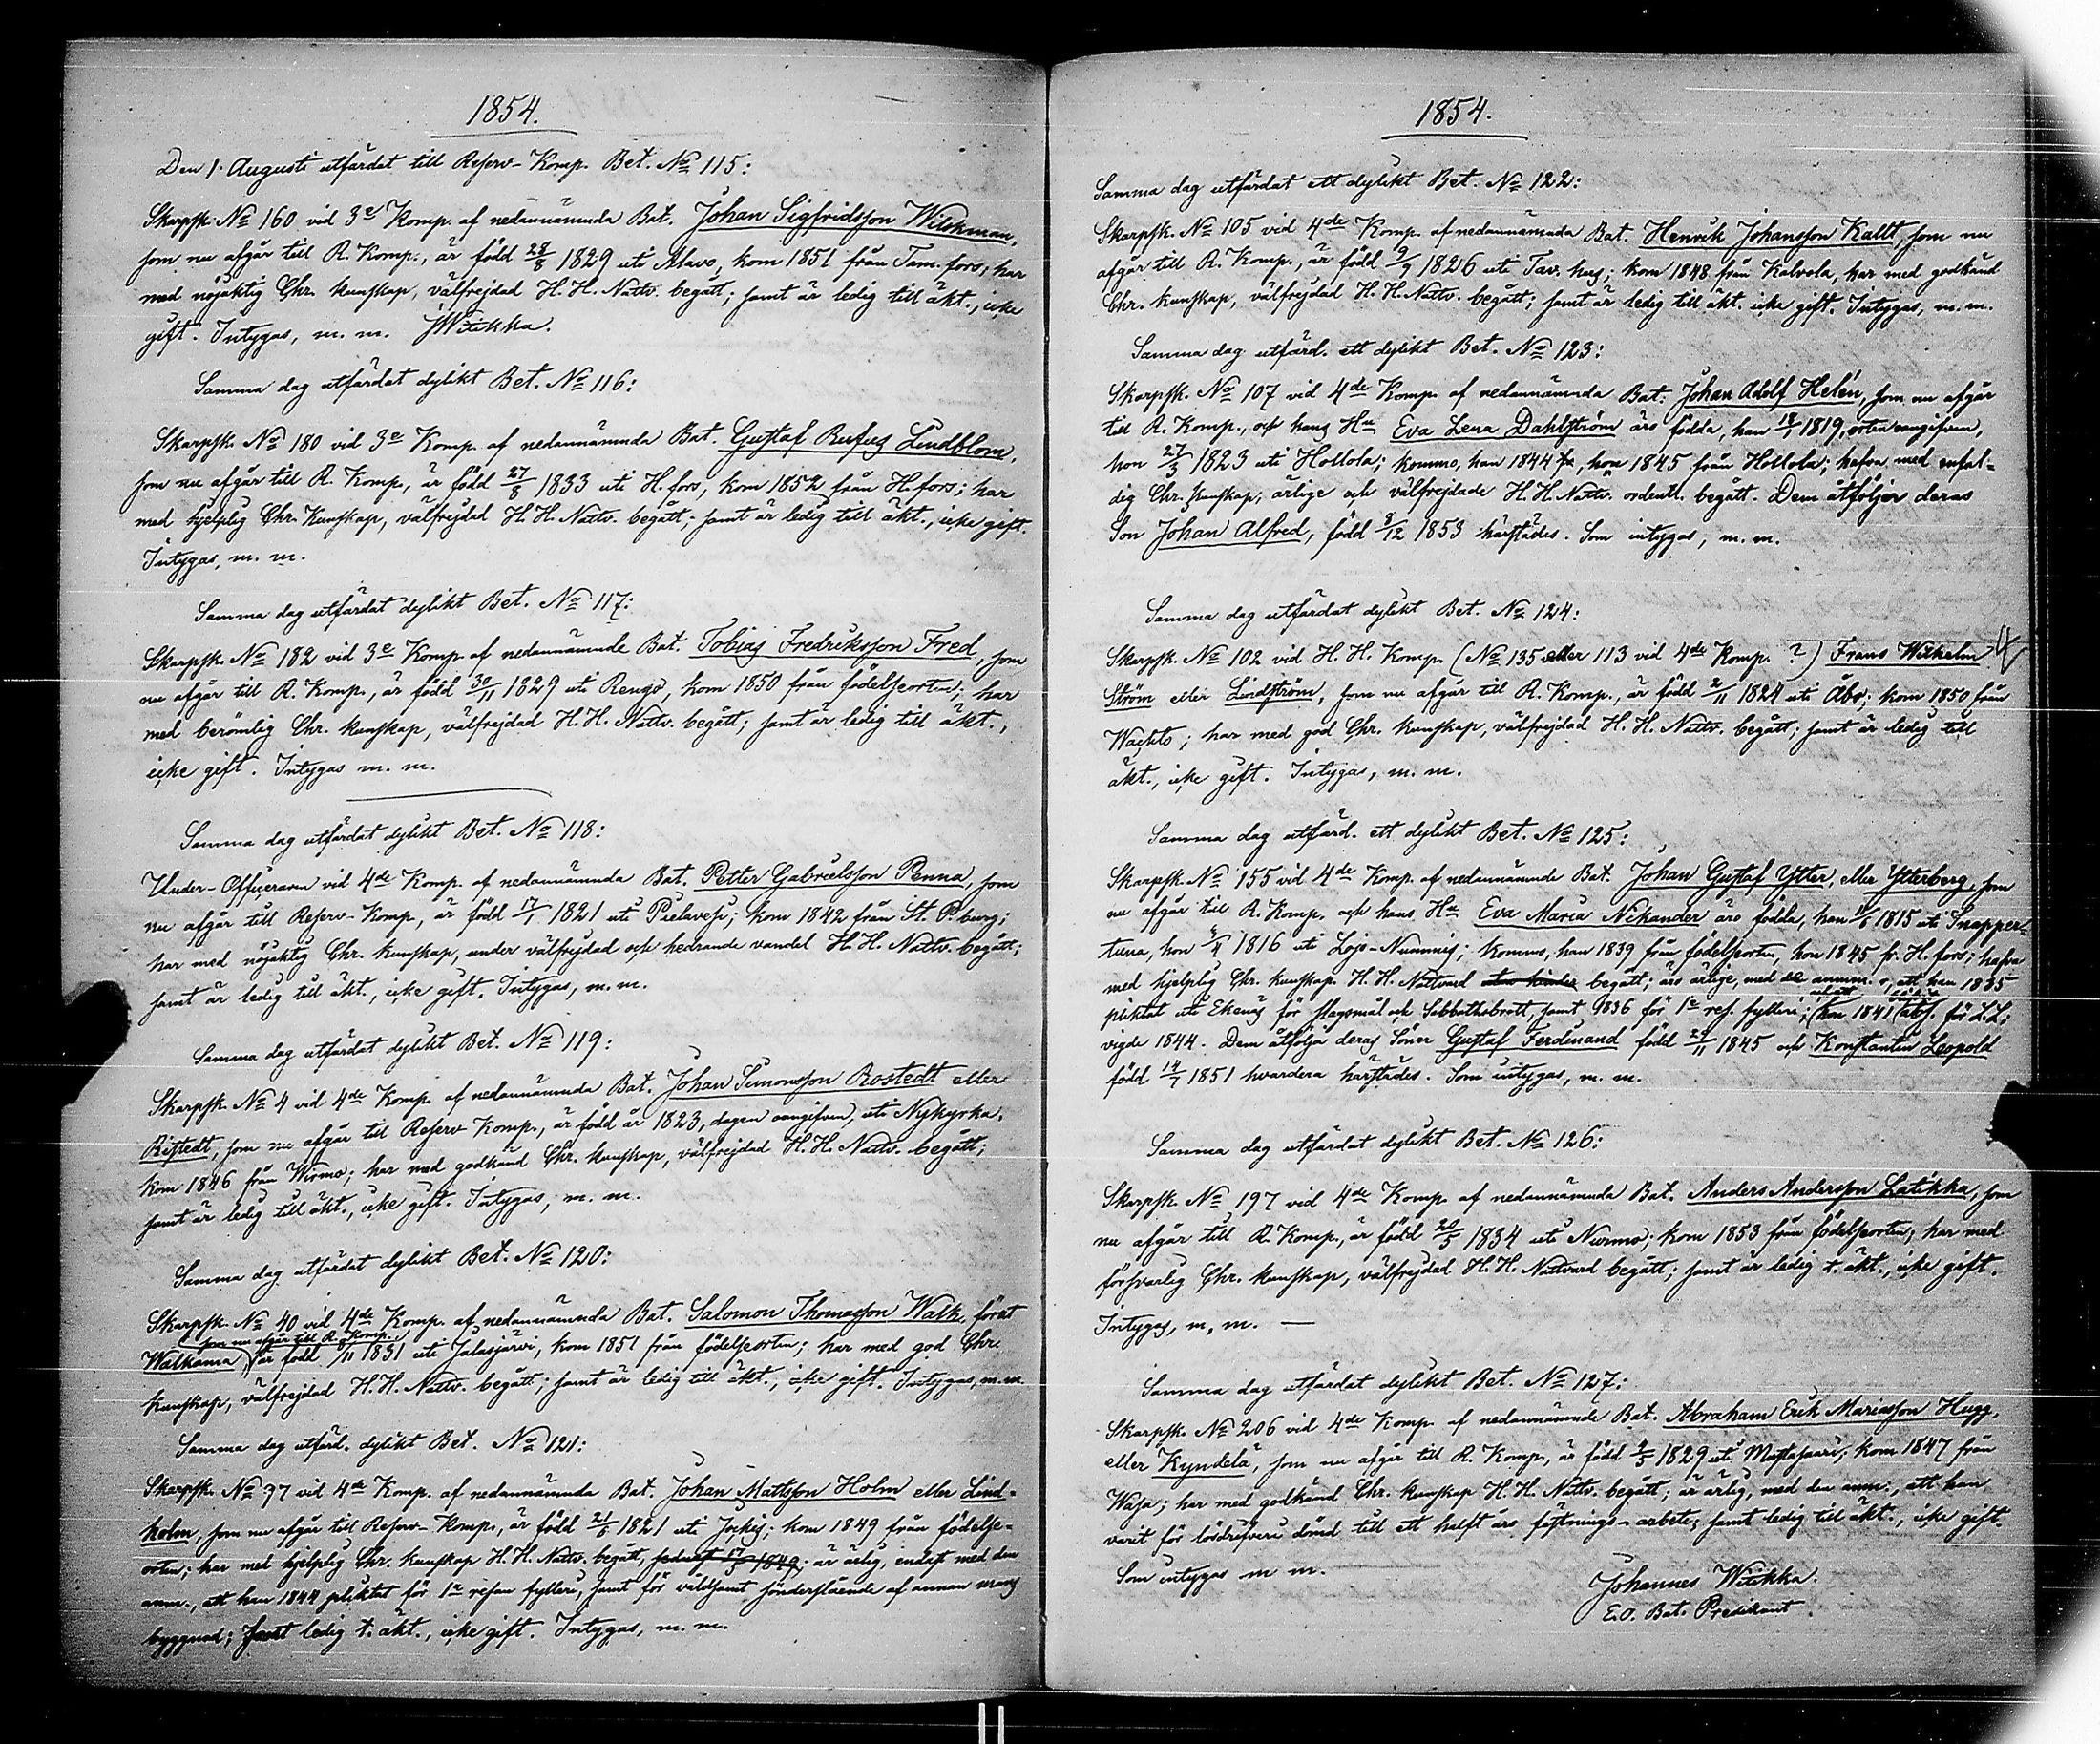 1854.
Den 1. Augusti utfärdat till Reserv-Komp. Bet. No 115:
Skarpsk. No 160 vid 3e Komp. af nedannämnda Bat. Johan Sigfridsson Wilckman,
som nu afgår till R. Komp., är född 28/8 1829 uti Alavo, kom 1851 från Tam. fors; har
med nöjaktig Chr. kunskap, välfrejdad H. H. Nattv. begått; samt är ledig till äkt., icke
gift. Intygas, m. m. JWitikka.
Samma dag utfärdat dylikt Bet. No 116:
Skarpsk. No 180 vid 3e Komp. af nedannämnda Bat. Gustaf Rufus Lindblom,
som nu afgår till R. Komp., är född 27/8 1833 uti H. fors, kom 1852 från H. fors; har
med hjelplig Chr. Kunskap, välfrejdad H. H. Nattv. begått; samt är ledig till äkt., icke gift.
Intygas, m. m.
Samma dag utfärdat dylikt Bet. No 117:
Skarpsk. No 182 vid 3e Komp. af nedannämnde Bat. Tobias Fredriksson Fred, som
nu afgår till R. Komp., är född 30/11 1829 uti Rengo, kom 1850 från födelseorten; har
med berömlig Chr. kunskap, välfrejdad H. H. Nattv. begått; samt är ledig till äkt.,
icke gift. Intygas m. m.
Samma dag utfärdat dylikt Bet. No 118:
Under-Officeraren vid 4de Komp. af nedannämnda Bat. Petter Gabrielsson Penna, som
nu afgår till Reserv-Komp., är född 17/1 1821 uti Pielavesi; kom 1842 från St. P.burg;
har med nöjaktig Chr. kunskap, under välfrejdad och hedrande vandel H. H. Nattv. begått;
samt är ledig till äkt., icke gift. Intygas, m. m.
Samma dag utfärdat dylikt Bet. No 119:
Skarpsk. No 4 vid 4de Komp. af nedannämnda Bat. Johan Simonsson Rostedt eller
Ristedt, som nu afgår till Reserv Komp., är född år 1823, dagen oangifven, uti Nykyrka,
kom 1846 från Wirmo; har med godkänd Chr. kunskap, välfrejdad H. H. Nattv. begått;
samt är ledig till äkt., icke gift. Intygas, m. m.
Samma dag utfärdat dylikt Bet. No 120:
Skarpsk. No 40 vid 4de Komp. af nedannämnda Bat. Salomon Thomasson Walk, förut
som nu afgår till R. Komp.
Walkama, är född /11 1831 uti Jalasjärvi, kom 1851 från födelseorten; har med god Chr.
kunskap, välfrejdad H. H. Nattv. begått; samt är ledig till äkt., icke gift. Intygas, m. m.
Samma dag utfärd. dylikt Bet. No 121:
Skarpsk. No 97 vid 4de Komp. af nedannämnda Bat. Johan Mattsson Holm eller Lind-
holm, som nu afgår till Reserv-Komp., är född 21/5 1821 uti Jockis; kom 1849 från födelse-
orten; har med hjelplig Chr. kunskap H. H. Nattv. begått, 1849; är ärlig, endast med den
anm., att han 1844 pliktat för 1a resan fylleri, samt för våldsamt sönderslående af annan mans
byggnad; samt ledig t. äkt., icke gift. Intygas, m. m.
1854.
Samma dag utfärdat ett dylikt Bet. No 122:
Skarpsk. No 105 vid 4de Komp. af nedannämnda Bat. Henrik Johansson Kallt, som nu
afgår till R. Komp., är född 9/9 1826 uti Tav. hus; kom 1848 från Kalvola, har med godkänd
Chr. kunskap, välfrejdad H. H. Nattv. begått; samt är ledig till äkt. icke gift. Intygas, m. m.
Samma dag utfärd. ett dylikt Bet. No 123:
Skarpsk. No 107 vid 4de Komp. af nedannämnda Bat. Johan Adolf Helén, som nu afgår
till R. Komp., och hans Hu Eva Lena Dahlström äro födda, han 18/1 1819, orten oangifven,
hon 27/3 1823 uti Hollola; kommo, han 1844 hon 1845 från Hollola; hafva med enfal-
dig Chr. kunskap, ärlige och välfrejdade H. H. Nattv. ordentl. begått. Dem åtföljer deras
Son Johan Alfred, född 8/12 1853 härstädes. Som intygas, m. m.
Samma dag utfärdat dylikt Bet. No 124:
Skarpsk. No 102 vid H. H. Komp. (No 135 eller 113 vid 4de Komp. ?) Frans Wilhelm
Ström eller Lindström, som nu afgår till R. Komp., är född 2/11 1824 uti Åbo; kom 1850 från
Wachto; har med god Chr. kunskap, välfrejdad H. H. Nattv. begått; samt är ledig till
äkt., icke gift. Intygas, m. m.
Samma dag utfärd. ett dylikt Bet. No 125:
Skarpsk. No 155 vid 4de Komp. af nedannämnde Bat. Johan Gustaf Ytter, eller Ytterberg, som
nu afgår till R. Komp. och hans Hu Eva Maria Nikander äro födda, han 11/6 1815 uti Snapper-
tuna, hon 1816 uti Lojo-Nummis; kommo, han 1839 från födelseorten, hon 1845 fr. H. fors; hafva
med hjelplig Chr. kunskap H. H. Nattvard begått; äro ärlige, med anmm., att han 1835
pliktat uti Ekenäs för slagsmål och Sabbathsbrott, samt 1836 för 1a res. fylleri; hon 1841 abs. för L. L;
vigde 1844. Dem åtfölja deras Söner Gustaf Ferdinand född 29/11 1845 och Konstantin Leopold
född 17/7 1851 hvardera härstädes. Som intygas, m. m.
Samma dag utfärdat dylikt Bet. No 126:
Skarpsk. No 197 vid 4de Komp. af nedannämnda Bat. Anders Andersson Latikka, som
nu afgår till R. Komp., är född 20/5 1834 uti Nurmo; kom 1853 från födelseorten; har med
försvarlig Chr. kunskap, välfrejdad H. H. Nattvard begått; samt är ledig t. äkt., icke gift.
Intygas, m, m. —
Samma dag utfärdat dylikt Bet. No 127:
Skarpsk. No 206 vid 4de Komp. af nedannämnde Bat. Abraham Erik Mariasson Hugg,
eller Kyndelä, som nu afgår till R. Komp., är född 2/5 1829 uti Mustasaari; kom 1847 från
Wasa; har med godkänd Chr. kunskap H. H. Nattv. begått; är ärlig, med den anm., att han
varit för lösdrifveri dömd till ett halft års fästnings-arbete; samt ledig till äkt., icke gift.
Som intygas m m.
Johannes Witikka.
E. O. Bat. Predikant.